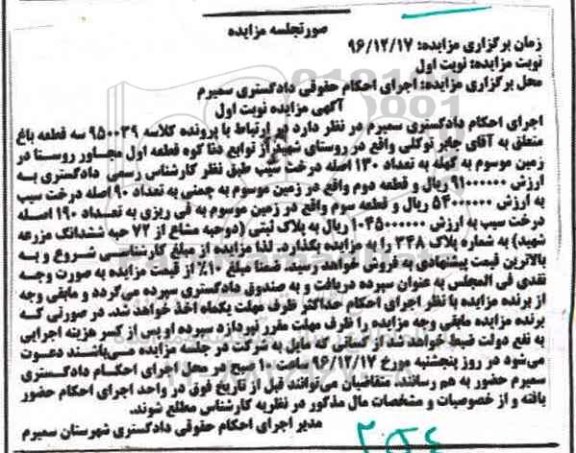 صورتجلسه مزایده
زمان برگزاری مزایده: ۹۶/۱۲/۱۷
نوبت مزایده: نوبت اول
محل برگزاری مزایده: اجرای احکام حقوقی دادگستری سمیرم
آگهی مزایده نوبت اول
اجرای احکام دادگستری سمیرم در نظر دارد در ارتباط با پرونده کلاسه ۹۵۰۰۳۹ سه قطعه باغ
متعلق به آقای جابر توکلی واقع در روستای شهید از توابع دنا کوه قطعه اول مجاور روستا در
زمین موسوم به کهله به تعداد ۱۳۰ اصله درخت سیب طبق نظر کارشناس رسمی دادگستری به
ارزش ۹۱۰۰۰۰۰۰ ریال و قطعه دوم واقع در زمین موسوم به چمنی به تعداد ۹۰ اصله درخت سیب
به ارزش ۵۴۰۰۰۰۰۰ ریال و قطعه سوم واقع در زمین موسوم به قی ریزی به تعداد ۱۹۰ اصله
درخت سیب به ارزش ۱۰۴۵۰۰۰۰۰۰ ریال به پلاک ثبتی (دوحبه مشاع از ۷۲ حبه ششدانگ مزرعه
شهید) به شماره پلاک ۳۴۸ را به مزایده بگذارد. لذا مزایده از مبلغ کارشناسی شروع و به
بالاترین قیمت پیشنهادی به فروش خواهد رسید. ضمنا مبلغ ۱۰٪ از قیمت مزایده به صورت وجه
نقدی فی المجلس به عنوان سپرده دریافت و به صندوق دادگستری سپرده می‌گردد و مابقی وجه
از برنده مزایده با نظر اجرای احکام حداکثر ظرف مهلت یکماه اخذ خواهد شد. در صورتی که
برنده مزایده مابقی وجه مزایده را ظرف مهلت مقرر نپردازد سپرده او پس از کسر هزینه اجرایی
به نفع دولت ضبط خواهد شد از کسانی که مایل به شرکت در جلسه مزایده می‌باشند دعوت
می‌شود در روز پنجشنبه مورخ ۹۶/۱۲/۱۷ ساعت ۱۰ صبح در محل اجرای احکام دادگستری
سمیرم حضور به هم رسانند. متقاضیان می‌توانند قبل از تاریخ فوق در واحد اجرای احکام حضور
یافته و از خصوصیات و مشخصات مال مذکور در نظریه کارشناس مطلع شوند.
مدیر اجرای احکام حقوقی دادگستری شهرستان سمیرم